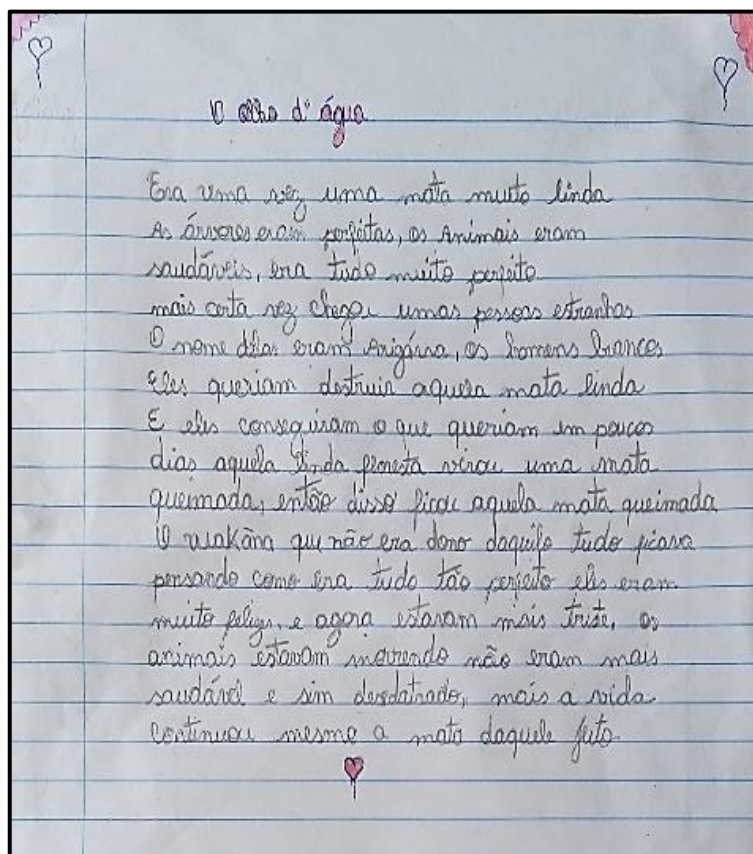 O olho d'água
Era uma vez uma mata muito linda
As árvores eram perfeitas, os Animais eram
saudáveis, era tudo muito perfeito.
mais certa vez chegou umas pessoas estranhas
O nome delas eram Arigárra, os homens brancos
Eles queriam destruir aquela mata linda
E eles conseguiram o que queriam em poucos
dias aquela linda floresta virou uma mata
queimada, então disso ficou aquela mata queimada
O que não era dono daquilo tudo ficava
pensando como era tudo tão perfeito eles eram
muito felizes, e agora estavam mais triste, os
animais estavam morrendo não eram mais
saudável e sim desidatrado, mais a vida
continuou mesmo a mata daquele jeito.